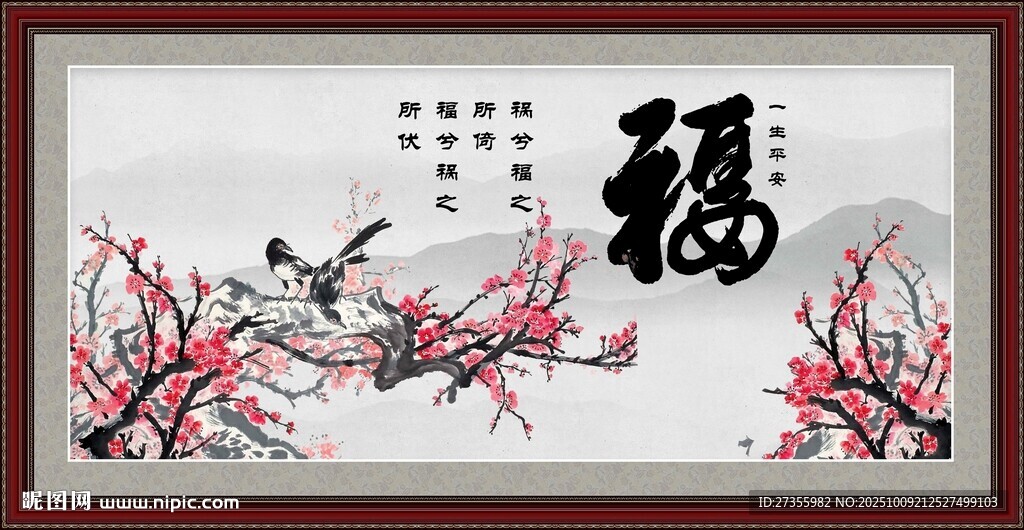 一生平安
福
祸兮福之
所倚
福兮祸之
所伏
昵图网 www.nipic.com
ID:27355982 NO:20251009212527499103